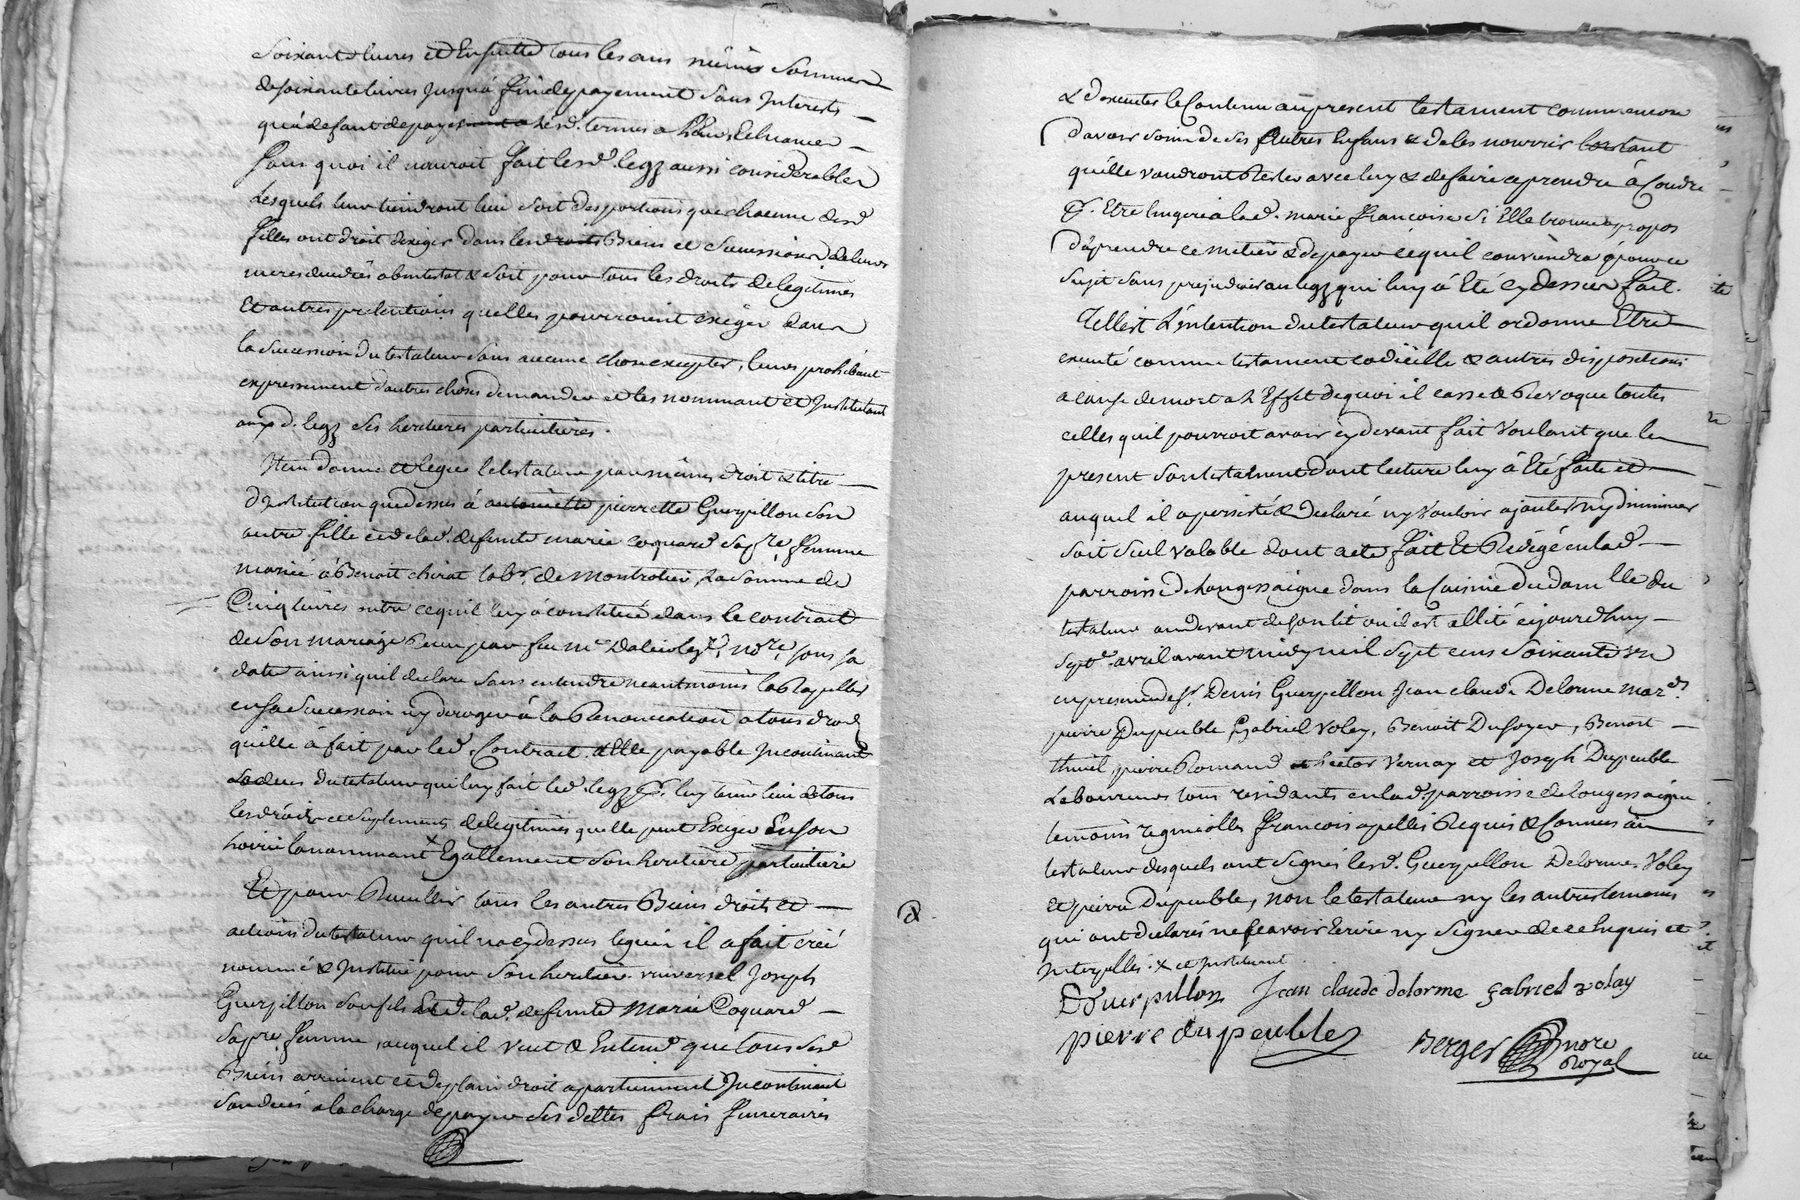 soixante livres et Ensuitte tous les ans même somme
de soixante livres jusqu'à fin de payement sans Interets
qu'a defaut de payer lesd. termes a leur Echeance
sans quoi il n'auroit fait lesd. legz aussi considerables
Lesquels leur tiendront lieu soit des portions que chacune desd
filles ont droit d'exiger dans les Biens et Succession de leurs
meres decedées abintestat & soit pour tous les droits de legitimes
Et autres pretentions quelles pourroient exiger dans
la succession du testateur sans aucune chose excepter, leurs prohibant
expressement d'autres choses demander et les nommant et Instituant
auxd. legz ses heritieres particulieres.
Item donne et legue le testateur par même droit & titre
d'institution que dessus à pierrette Guerpillon son
autre fille et de lad. defunte marie coquard sa pre. femme
mariée à Benoit chirat labr. de Montrotier, la somme de
Cinq livres outre ce quil luy a constitué dans le contract
de son mariage Receu par feu me nore, sous sa
date ainsi quil declare sans entendre neantmoins la Rapeller
en sa Succession ny deroger à la Renonciation a tous droits
quelle à fait par led. Contract. Elle payable Incontinant
du testateur qui luy fait led. legz pr. luy tenir lieu de tous
les droits et suplements de legitimes quelle peut Exiger En son
hoirie lanommant x Egallement son heritiere particuliere
Et pour Recueillir tous les autres Biens droits et
actions du testateur quil n'a cy dessus legués il a fait créé
nommé & Institué pour son heritier universel Joseph
Guerpillon son fils & de lad. defunte Marie Coquard
sa pre. femme, auquel il veut & Entend que tous sesd
Biens arrivent et de plain droit apartiennent Incontinent
son deces a la charge de payer ses dettes frais funeraires
& d'executer le Contenu au present testament comme aussi
davoir soin de ses Autres Enfans & de les nourrir tant
quelle voudront Rester avec luy & de faire aprendre à Coudre
pr. Etre lingere à lad. marie françoise si Elle trouve apropos
d'aprendre ce metier & de payer ce quil conviendra pour ce
sujet sans prejudicier au legz qui luy à Eté cy dessus fait.
Telle est L'intention du testateur quil ordonne Etre
executé comme testament codicille & autres dispositions
a cause de mort a L'Effet de quoi il casse & Revoque toutes
celles quil pourroit avoir cy devant fait Voulant que le
present son testament dont lecture luy à Eté faite et
auquel il a persisté & Declaré ny Vouloir ajouter ny diminuer
soit seul valable dont acte fait Et Redigé en lad.
parroisse de longessaigne dans la Cuisine du domlle du
testateur au devant de son lit ou il est allité cejourd'huy
sept avril avant midy mil sept cens soixante un
en presence de sr. Denis Guerpillon Jean claude Delorme mard.
pierre Dupeuble Gabriel Volay, Benoit Dufoyer, Benoit
thivel, pierre Romand hector Vernay et Joseph Dupeuble
Laboureurs tous residants en lad. parroisse de longessaigne
temoins regnicolles francois apellés Requis & Connus au
testateur desquels ont signés lesd. Guerpillon Delorme, Volay
Et pierre Dupeuble, non le testateur ny les autres temoins
qui ont declarés ne scavoir Ecrire ny signer de ce Enquis et
Interpellés. x et Instituant
DGuerpillon Jean claude delorme gabriel volay
pierre dupeuble Berger nore
Royal